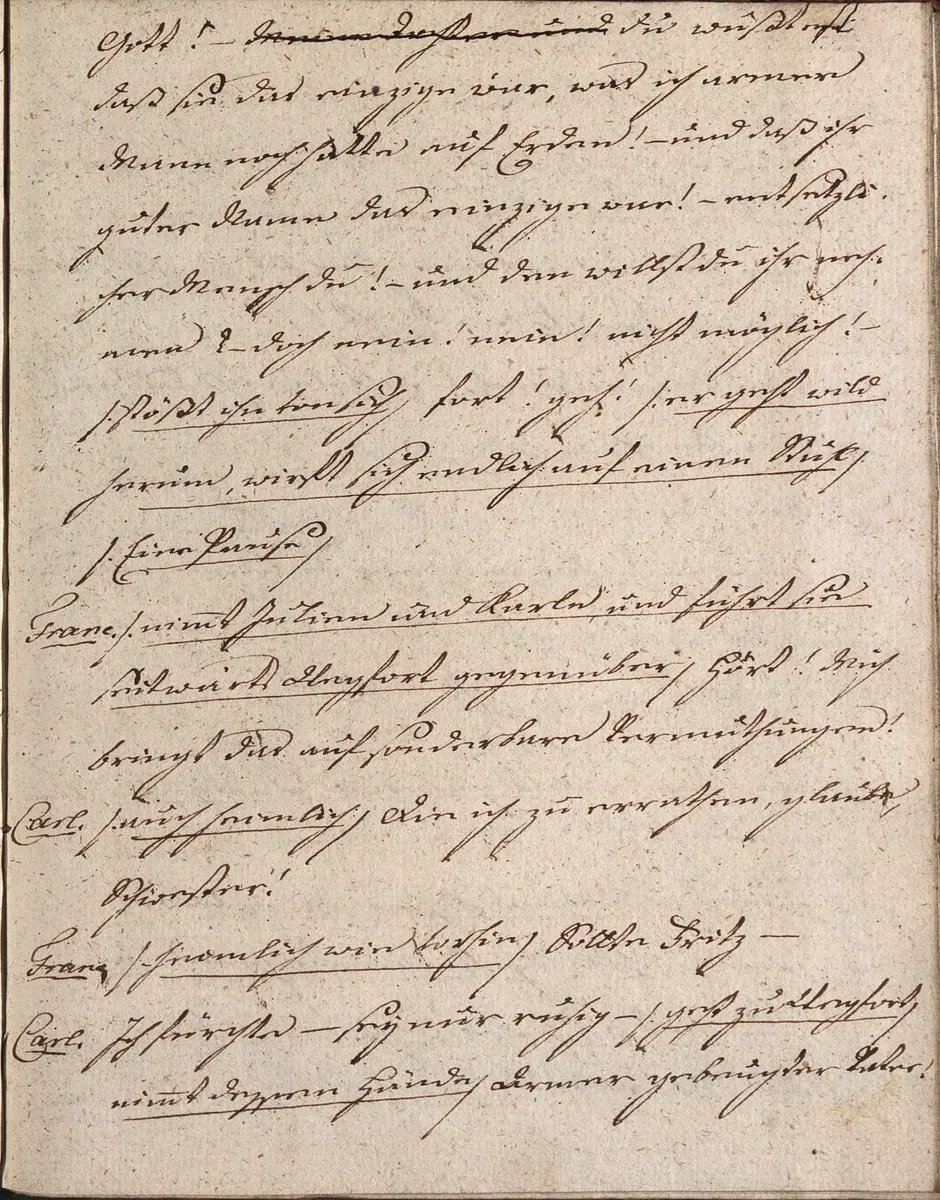 Gott! – Meine Tochter und du wußtest
daß sie das einzige war, was ich armer
Mann noch hatte auf Erden! – und daß ihr
guter Name das einzige war! – entsetzli-
cher Mensch du! – und den willst du ihr neh-
men? – doch nein! nein! nicht möglich! –
/: stößt ihn von sich / fort! geh! /: er geht wild
herum, wirft sich endlich auf einen Stuhl /
/: Eine Pause /
Franc. /: nimmt Julien und Karln und führt sie
seitwärts gegenüber / Hört! Mich
bringt das auf sonderbare Vermuthungen!
Carl. /: auch heimlich / Die ich zu errathen, glaube,
Schwester!
Franc /: heimlich wie vorhin / Sollte Fritz –
Carl. Ich fürchte – sey nur ruhig – /: geht zu
nimmt dessen Hände / Armer gebeugter Vater!